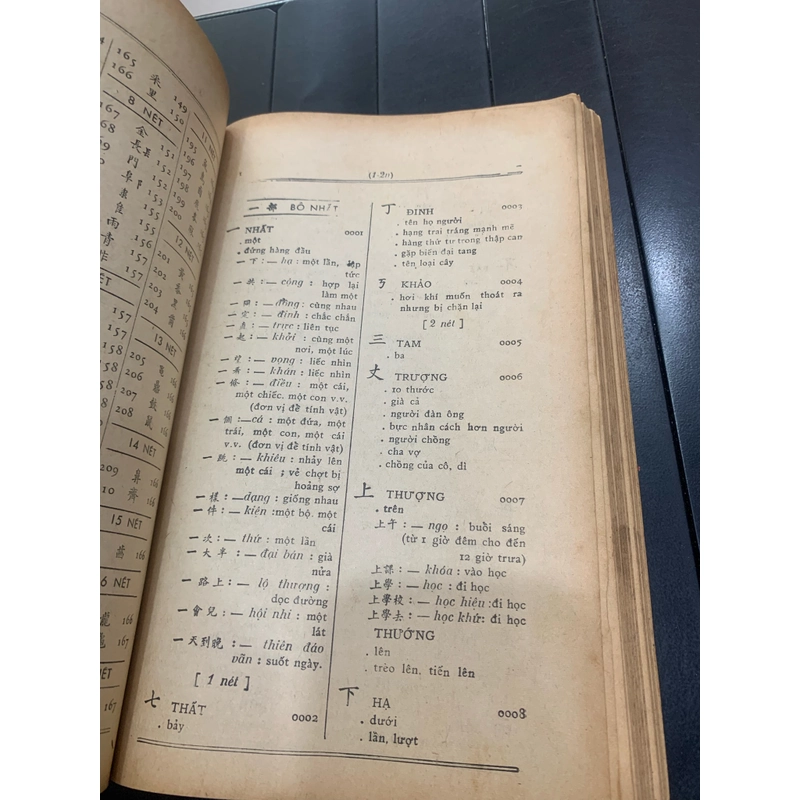 165 釆 149
166 里 150
8 NÉT
167 金 151
長 151
門 152
雨 156
青 156
157
157
158
158
11 NÉT
195
196
197
198
199
200
12 NÉT
201 黃
202 黍
203 黑
204 黹
13 NÉT
205 黽
206
207 鼓
208 鼠
14 NÉT
209 鼻 166
10 齊 166
15 NÉT
166
6 NÉT
166
167
NÉT
167
(1-2n)
一 部 BỘ NHẤT
一 NHẤT 0001
. một
. đứng hàng đầu
一 下 : — hạ : một lần, lập
tức
一 共 : — cộng : hợp lại
làm một
一 同 : — đồng : cùng nhau
一 定 : — định : chắc chắn
一 直 : — trực : liên tục
一 起 : — khởi : cùng một
nơi, một lúc
一 望 : — vọng : liếc nhìn
一 看 : — khán : liếc nhìn
一 條 : — điều : một cái,
một chiếc. một con v.v.
(đơn vị để tính vật)
一 個 : — cá : một đứa, một
trái, một con, một cái
v.v. (đơn vị để tính vật)
一 跳 : — khiêu : nhảy lên
một cái ; vẻ chợt bị
hoảng sợ
一 樣 : — dạng : giống nhau
一 件 : — kiện : một bộ. một
cái
一 次 : — thứ : một lần
一 大 半 : — đại bán : già
nửa
一 路 上 : — lộ thượng :
dọc đường
一 會 兒 : — hội nhi : một
lát
一 天到晚 : — thiên đáo
vãn : suốt ngày.
[ 1 nét ]
七 THẤT 0002
. bảy
丁 ĐINH 0003
. tên họ người
. hạng trai tráng mạnh mẽ
. hàng thứ tư trong thập can
. gặp biến đại tang
. tên loại cây
丂 KHẢO 0004
. hơi khí muốn thoát ra
nhưng bị chặn lại
[ 2 nét ]
三 TAM 0005
. ba
丈 TRƯỢNG 0006
. 10 thước
. già cả
. người đàn ông
. bực nhân cách hơn người
. người chồng
. cha vợ
. chồng của cô, dì
上 THƯỢNG 0007
. trên
上午 : — ngọ : buổi sáng
(từ 1 giờ đêm cho đến
12 giờ trưa)
上課 : — khóa : vào học
上學 : — học : đi học
上學校 : — học hiệu : đi học
上學去 : — học khứ : đi học
THƯỚNG
. lên
. trèo lên, tiến lên
下 HẠ 0008
. dưới
. lần, lượt